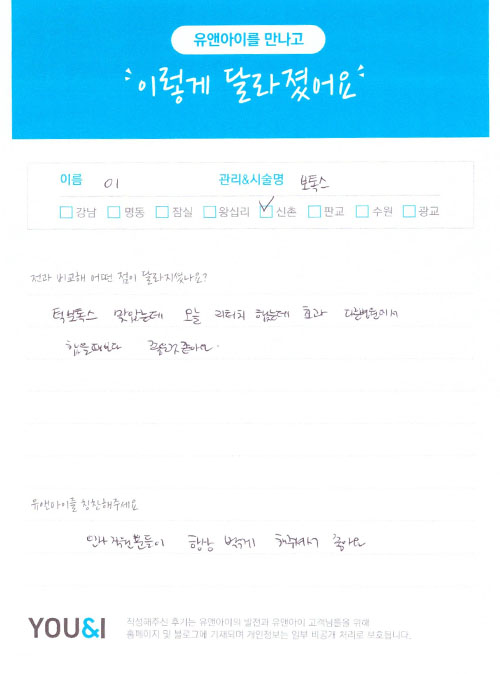 유앤아이를 만나고
이렇게 달라졌어요
이름 이 관리&시술명 보톡스
강남 명동 잠실 왕십리 신촌 판교 수원 광교
전과 비교해 어떤 점이 달라지셨나요?
턱보톡스 맞았는데 오늘 리터치 했는데 효과 다른병원에서
했을때보다 좋아요.
유앤아이를 칭찬해주세요
직원분들이 항상 밝게 해주셔서 좋아요
YOU&I
작성해주신 후기는 유앤아이의 발전과 유앤아이 고객님들을 위해
홈페이지 및 블로그에 기재되며 개인정보는 일부 비공개 처리로 보호됩니다.